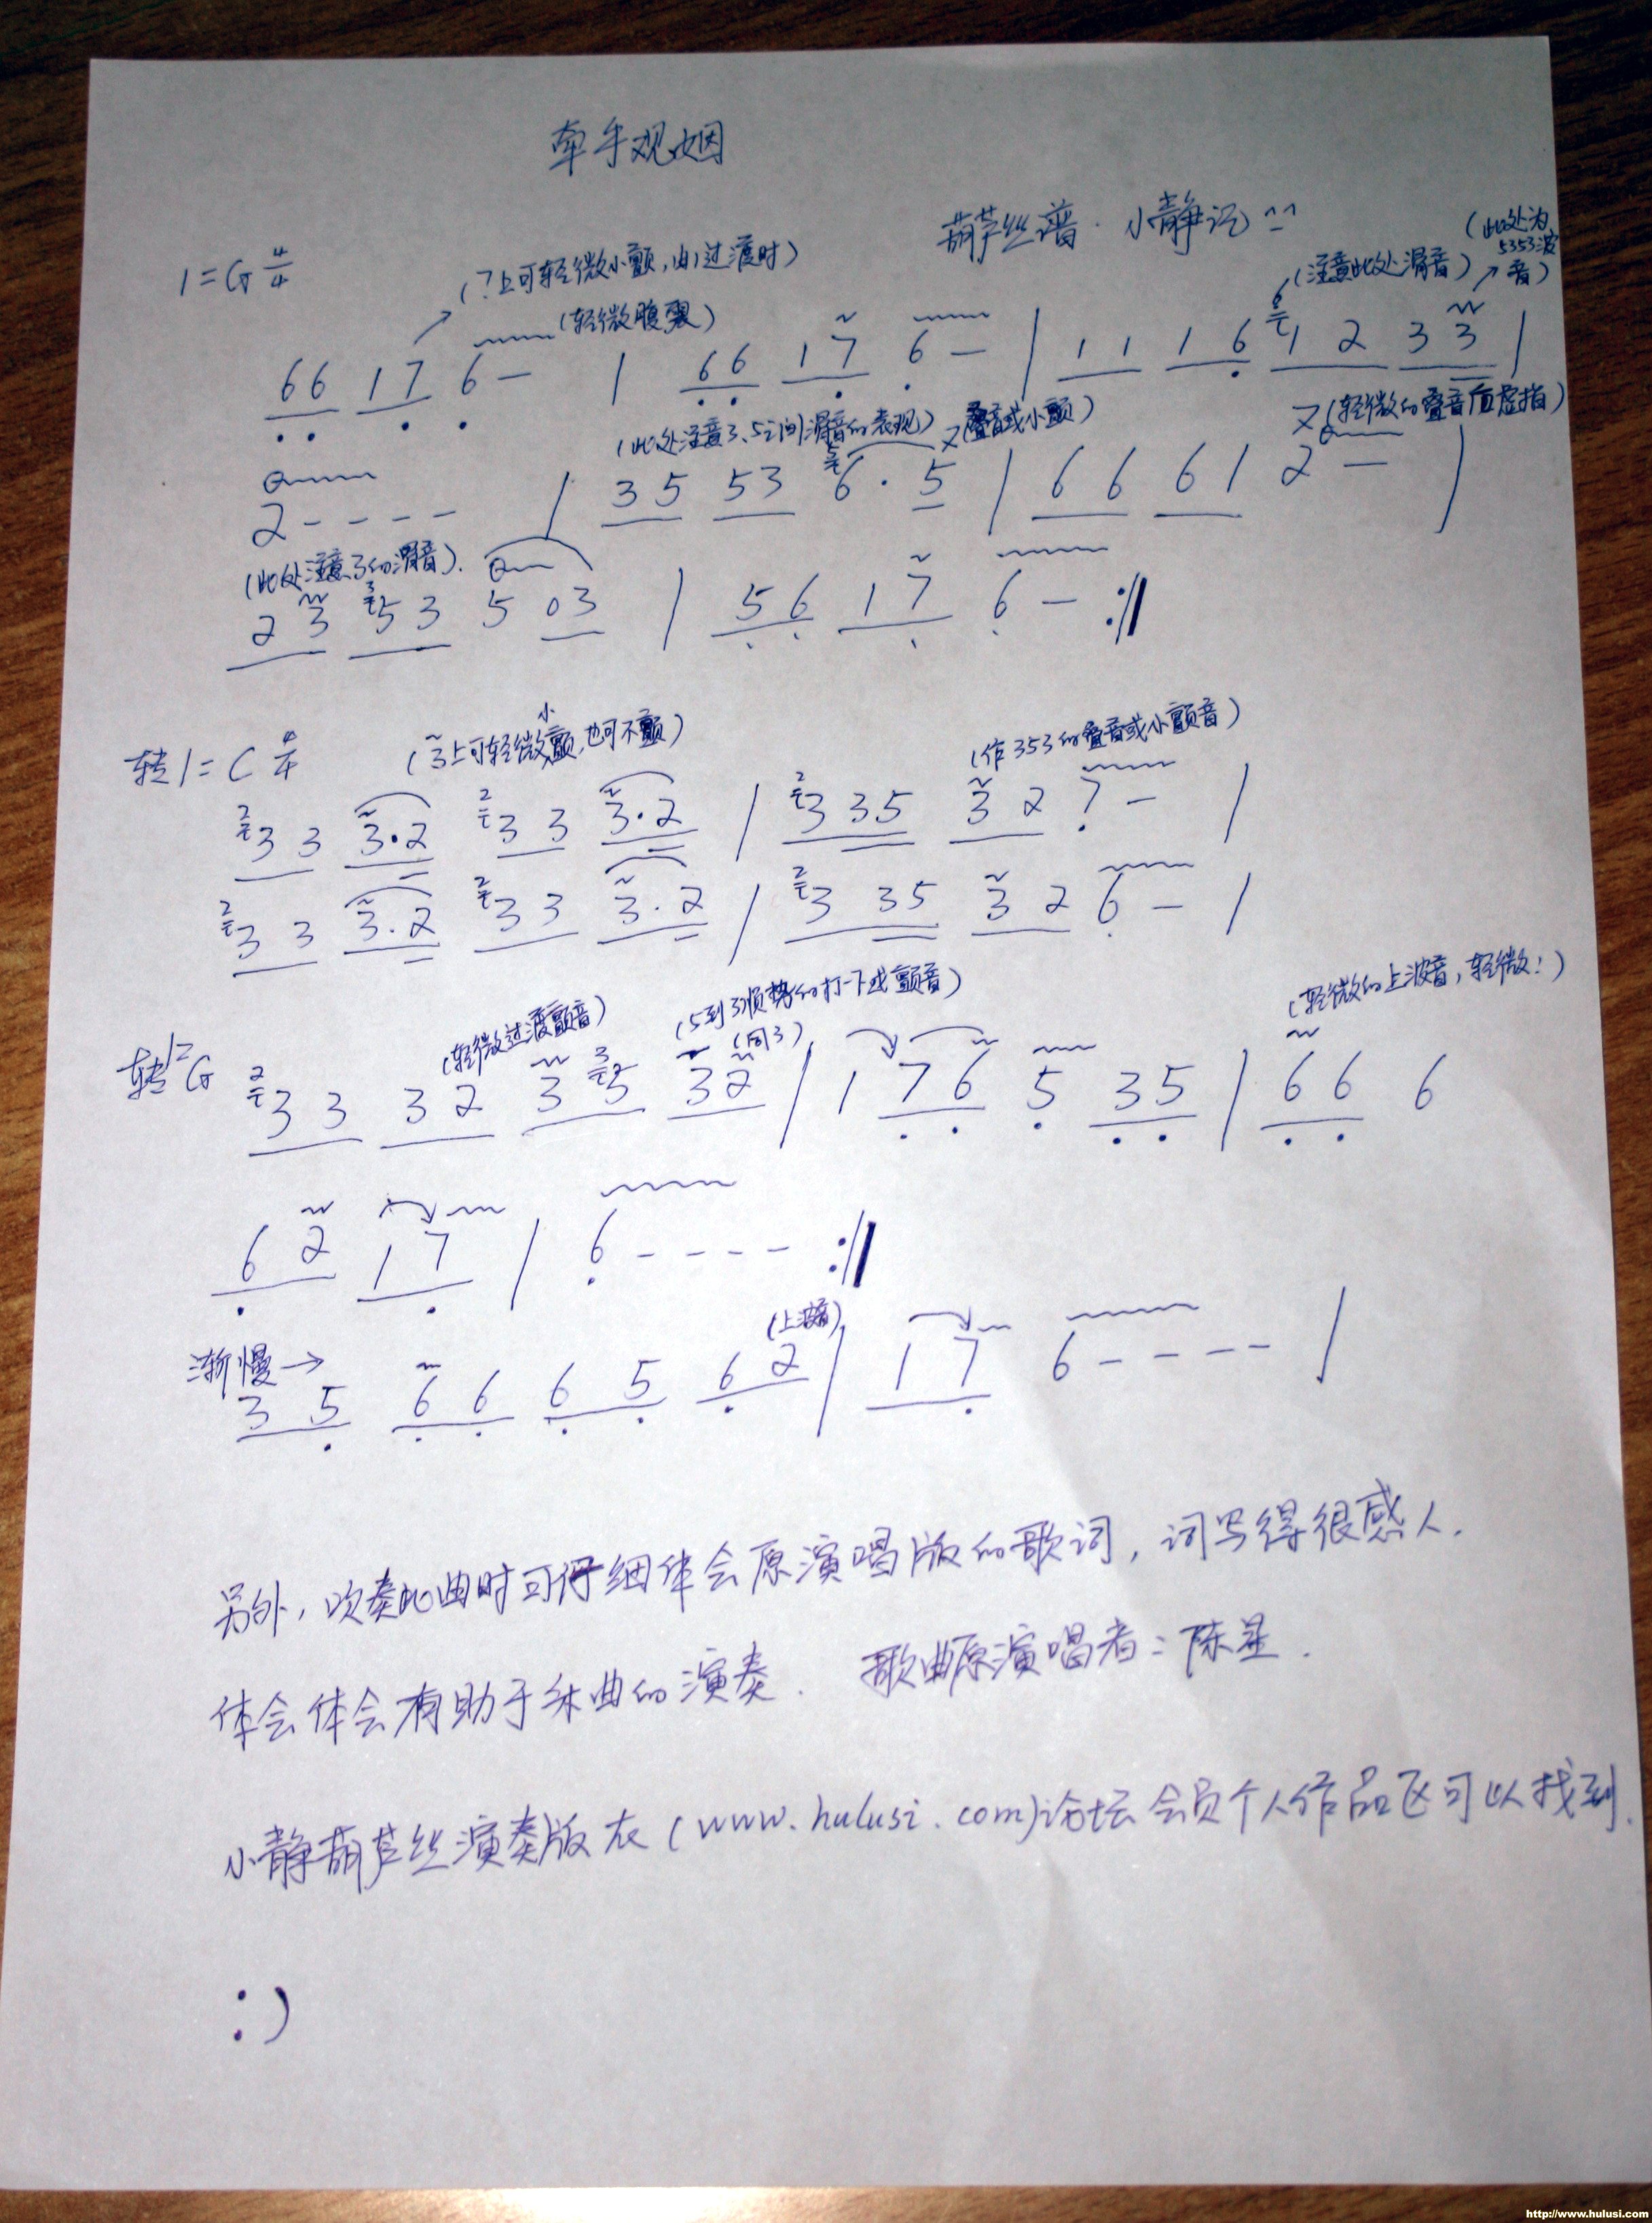 牵手观姻
葫芦丝谱·小静记^^
1=G 4/4
(7上可轻微小颤,由1过渡时)
(轻微腹颤)
(注意此处滑音)
(此处为5353波音)
66 17 6 — | 66 17 6 — | 11 16 12 33 |
(此处注意3、5之间滑音的表现)
(叠音或小颤)
(轻微的叠音后虚指)
2 - - - - | 35 53 6·5 | 66 61 2 — |
(此处注意3的滑音).
23 53 5 03 | 56 17 6 — :||
转1=C 4/4
(3上可轻微小颤,也可不颤)
(作353的叠音或小颤音)
33 3·2 33 3·2 | 335 32 7 — |
33 3·2 33 3·2 | 3 35 32 6 — |
(轻微过渡颤音)
(5到3顺势的打一下或颤音)
(同3)
(轻微的上波音,轻微!)
转1=G 33 32 35 32 | 1 76 5 35 | 66 6
62 17 | 6 - - - - :||
渐慢→
(上波音)
35 66 65 62 | 17 6 - - - - |
另外,吹奏此曲时可仔细体会原演唱版的歌词,词写得很感人.
体会体会有助于本曲的演奏. 歌曲原演唱者:陈星.
小静葫芦丝演奏版在(www.hulusi.com)论坛会员个人作品区可以找到.
:)
http://www.hulusi.com